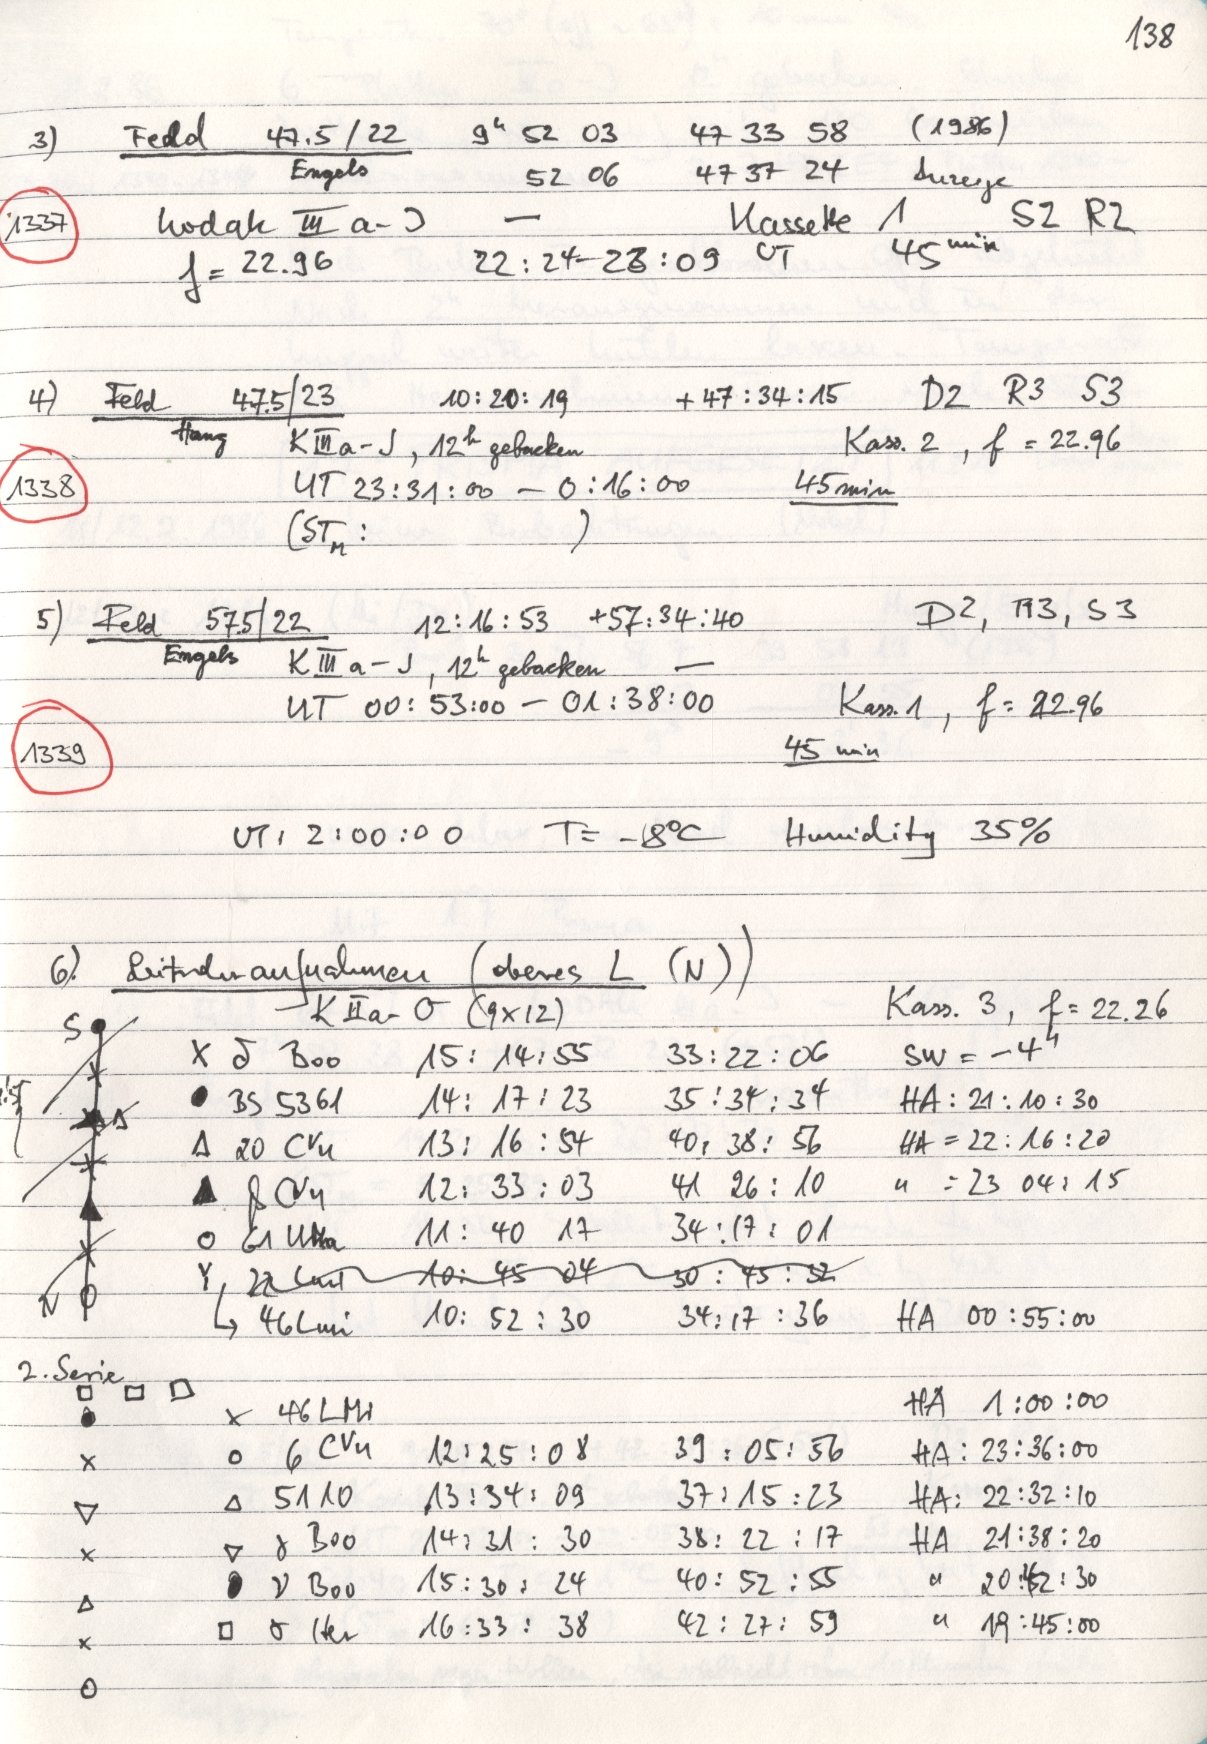 138
3) Feld 47.5/22 9h 52 03 47 33 58 (1986)
Engels 52 06 47 37 24 Anzeige
1337 Kodak III a-J — Kassette 1 S2 R2
f = 22.96 22:24-23:09 UT 45 min
4) Feld 47.5/23 10:20:19 +47:34:15 D2 R3 S3
Haug K III a-J, 12h gebacken Kass. 2, f = 22.96
1338 UT 23:31:00 — 0:16:00 45 min
(STM: )
5) Feld 57.5/22 12:16:53 +57:34:40 D2, R3, S3
Engels K III a-J, 12h gebacken —
UT 00:53:00 — 01:38:00 Kass. 1, f = 22.96
1339 45 min
UT: 2:00:00 T = -18°C Humidity 35%
6) (oberes L (N))
K IIa-O (9x12) Kass. 3, f = 22.26
S X δ Boo 15:14:55 33:22:06 SW = -4h
● BS 5361 14:17:23 35:34:34 HA: 21:10:30
△ 20 CVn 13:16:54 40:38:56 HA = 22:16:20
▲ β CVn 12:33:03 41 26:10 " = 23 04:15
○ 61 UMa 11:40 17 34:17:01
N Y 22 LMi 10:45 04 30:45:32
↳ 46 LMi 10:52:30 34:17:36 HA 00:55:00
2. Serie
□ □ □
x 46 LMi HA 1:00:00
○ 6 CVn 12:25:08 39:05:56 HA: 23:36:00
△ 5110 13:34:09 37:15:23 HA: 22:32:10
▽ γ Boo 14:31:30 38:22:17 HA 21:38:20
● ν Boo 15:30:24 40:52:55 " 20:42:30
□ σ Her 16:33:38 42:27:59 " 19:45:00